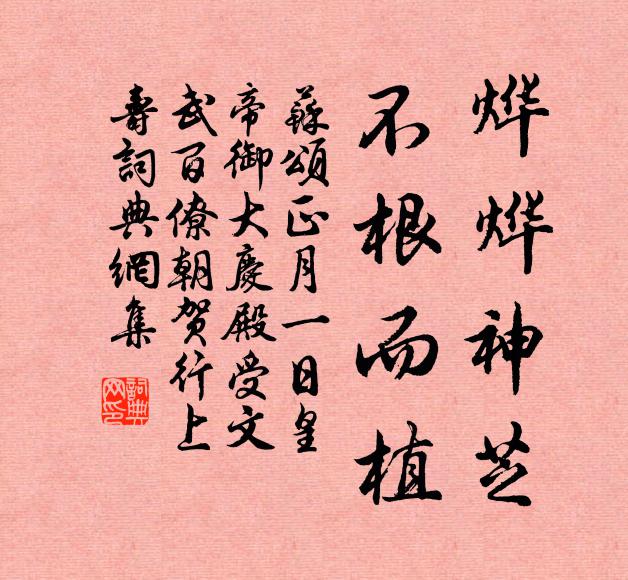 烨烨神芝
不根而植
蘇頌正月一日皇
帝御大慶殿受文
武百僚朝贺行上
壽詞典網集
詞典
网印